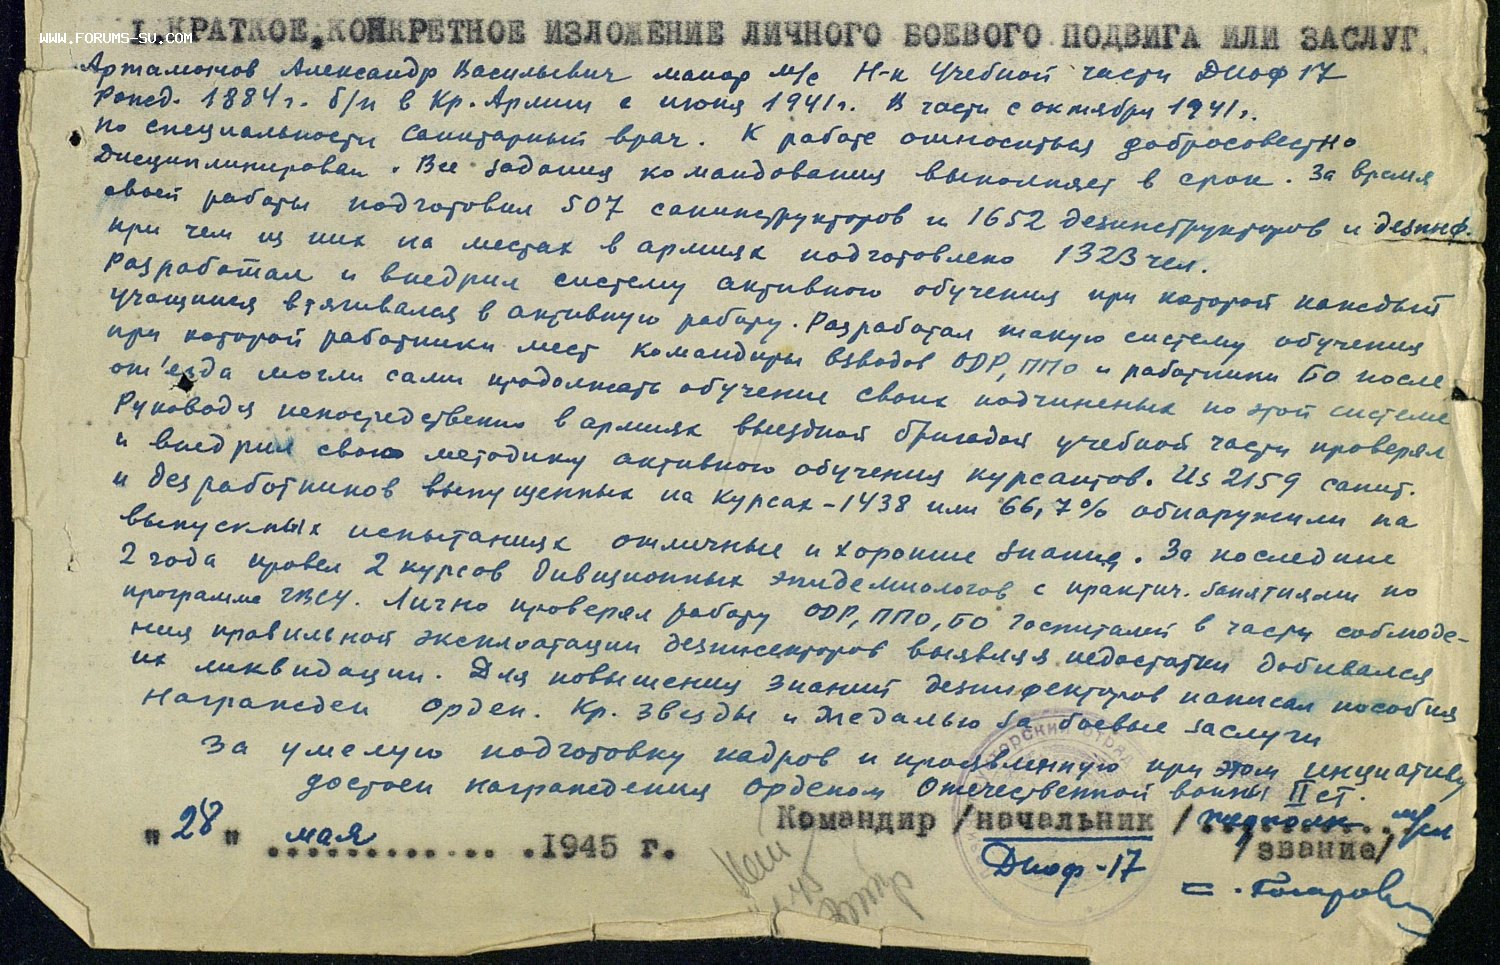 I. КРАТКОЕ, КОНКРЕТНОЕ ИЗЛОЖЕНИЕ ЛИЧНОГО БОЕВОГО ПОДВИГА ИЛИ ЗАСЛУГ
www.forums-su.com
Артамонов Александр Васильевич майор м/с Н-к Учебной части Диоф 17
Рожд. 1884 г. б/п в Кр. Армии с июня 1941 г. В части с октября 1941 г.
по специальности санитарный врач. К работе относиться добросовестно
Дисциплинирован. Все задания командования выполняет в срок. За время
своей работы подготовил 507 санинструкторов и 1652 дезинструкторов и дезинф.
при чем из них на местах в армиях подготовлено 1323 чел.
Разработал и внедрил систему активного обучения при которой каждый
учащийся втягивался в активную работу. Разработал такую систему обучения
при которой работники мест командиры взводов ОДР, ППО и работники БО после
от'езда могли сами продолжать обучение своих подчиненых по этой системе
Руководя непосредственно в армиях выездной бригадой учебной части проверял
и внедрил свою методику активного обучения курсантов. Из 2159 санит.
и дезработников выпущенных на курсах - 1438 или 66,7% обнаружили на
выпускных испытаниях отличные и хорошие знания. За последние
2 года провел 2 курсов дивизионных эпидемиологов с практич. занятиями по
программе ГВСУ. Лично проверял работу ОДР, ППО, БО госпиталей в части соблюде-
ния правильной эксплоатации дезинсекторов выявляя недостатки добивался
их ликвидации. Для повышения знаний дезинфекторов написал пособия
Награжден Орден. Кр. Звезды и медалью за боевые заслуги
За умелую подготовку кадров и проявленную при этом инциативу
достоен награждения орденом Отечественной войны II ст.
"28" мая 1945 г.
Командир /начальник / подполк м/сл
/звание/
Диоф-17